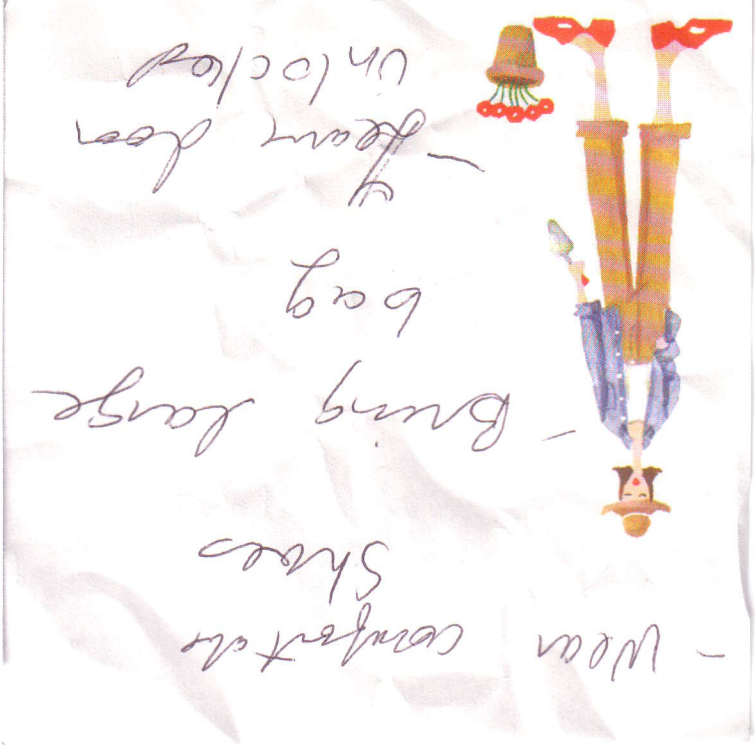 - Wear comfortable
Shoes
- Bring large
bag
- Leave door
unlocked